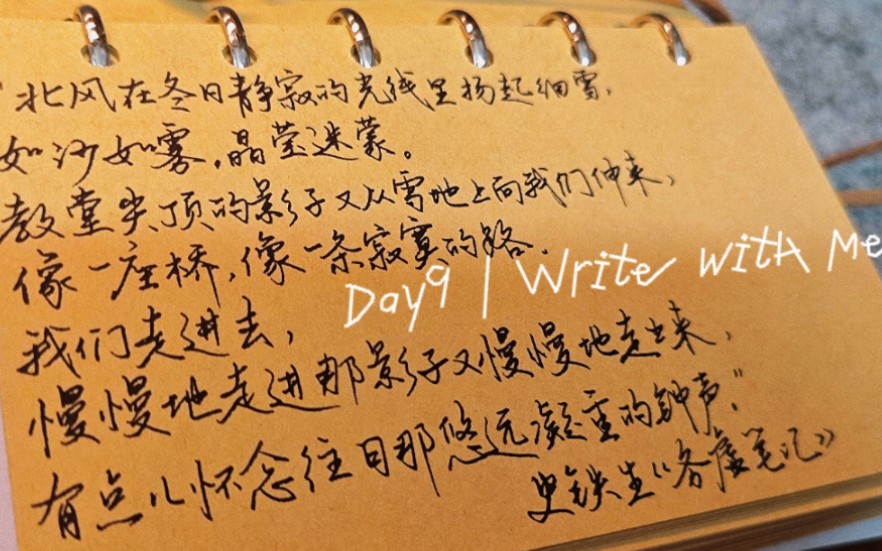 "北风在冬日静寂的光线里扬起细雪,
如沙如雾,晶莹迷蒙。
教堂尖顶的影子又从雪地上向我们伸来,
像一座桥,像一条寂寞的路.
Day9 | Write with Me
我们走进去,
慢慢地走进那影子又慢慢地走出来,
有点儿怀念往日那悠远凝重的钟声."
史铁生《务虚笔记》